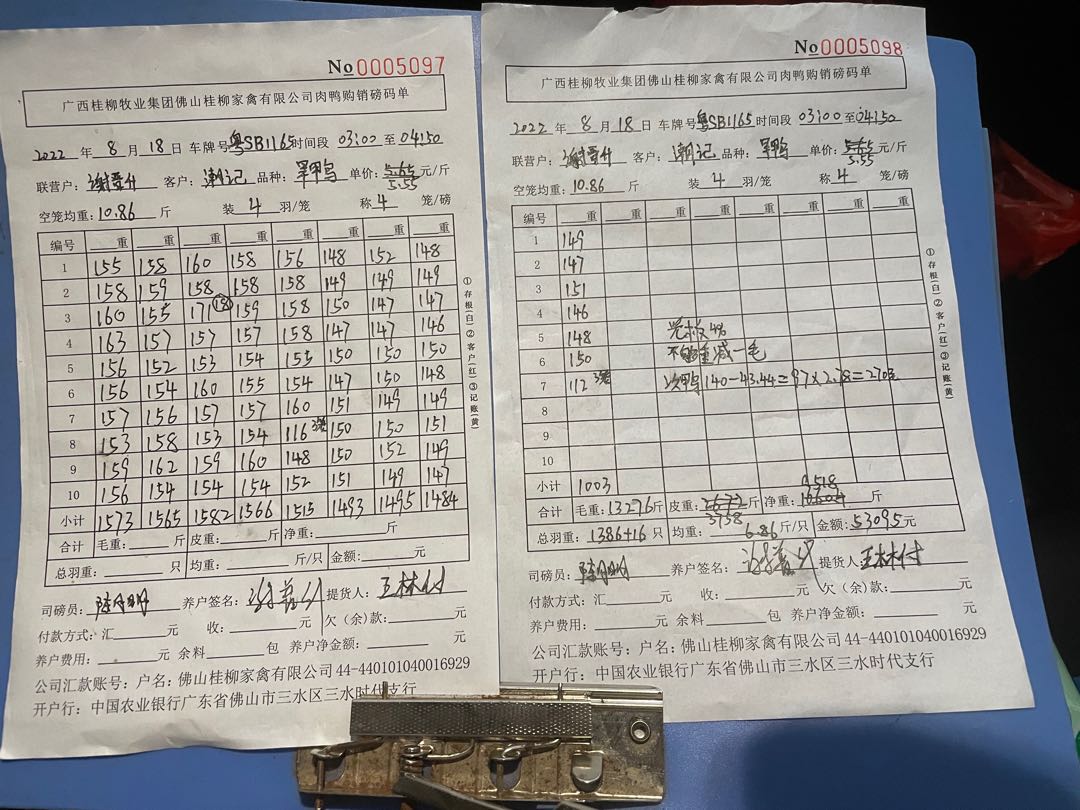 No 0005097
广西桂柳牧业集团佛山桂柳家禽有限公司肉鸭购销磅码单
2022 年 8 月 18 日 车牌号 粤SB1165 时间段 03:00 至 04:50
联营户: 客户: 潮记 品种: 单价: 5.65 元/斤
5.55
空笼均重: 10.86 斤 装 4 羽/笼 称 4 笼/磅
编号 重 重 重 重 重 重 重 重
1 155 158 160 158 156 148 152 148
2 158 159 158 158 158 149 149 149
3 160 155 171 (18) 159 158 150 147 147
4 163 157 157 157 158 147 147 146
5 156 152 153 154 155 150 150 150
6 156 154 160 155 154 147 150 148
7 157 156 157 157 160 151 149 149
8 153 158 153 154 116 150 150 151
9 159 162 159 160 148 150 152 149
10 156 154 154 154 152 151 149 147
小计 1573 1565 1582 1566 1515 1493 1495 1484
合计 毛重: 斤 皮重: 斤 净重: 斤
总羽重: 只 均重: 斤/只 金额: 元
司磅员: 养户签名: 提货人: 王林付
付款方式: 汇 元 收: 元 欠(余)款: 元
养户费用: 元 余料 包 养户净金额: 元
公司汇款账号: 户名: 佛山桂柳家禽有限公司 44-440101040016929
开户行: 中国农业银行广东省佛山市三水区三水时代支行
①存根(白)②客户(红)③记账(黄)
No 0005098
广西桂柳牧业集团佛山桂柳家禽有限公司肉鸭购销磅码单
2022 年 8 月 18 日 车牌号 粤SB1165 时间段 03:00 至 04:50
联营户: 客户: 潮记 品种: 单价: 5.65 元/斤
5.55
空笼均重: 10.86 斤 装 4 羽/笼 称 4 笼/磅
编号 重 重 重 重 重 重 重
1 149
2 147
3 151
4 146
5 148
6 150 减一毛
7 112 次鸭 140-43.44=97×2.78=270元
8
9
10
小计 1003
9518
合计 毛重: 13276 斤 皮重: 2672 斤 净重: 10604 斤
3758
总羽重: 1386+16 只 均重: 6.86 斤/只 金额: 53095 元
司磅员: 养户签名: 提货人: 王林付
付款方式: 汇 元 收: 元 欠(余)款: 元
养户费用: 元 余料 包 养户净金额: 元
公司汇款账号: 户名: 佛山桂柳家禽有限公司 44-440101040016929
开户行: 中国农业银行广东省佛山市三水区三水时代支行
①存根(白)②客户(红)③记账(黄)